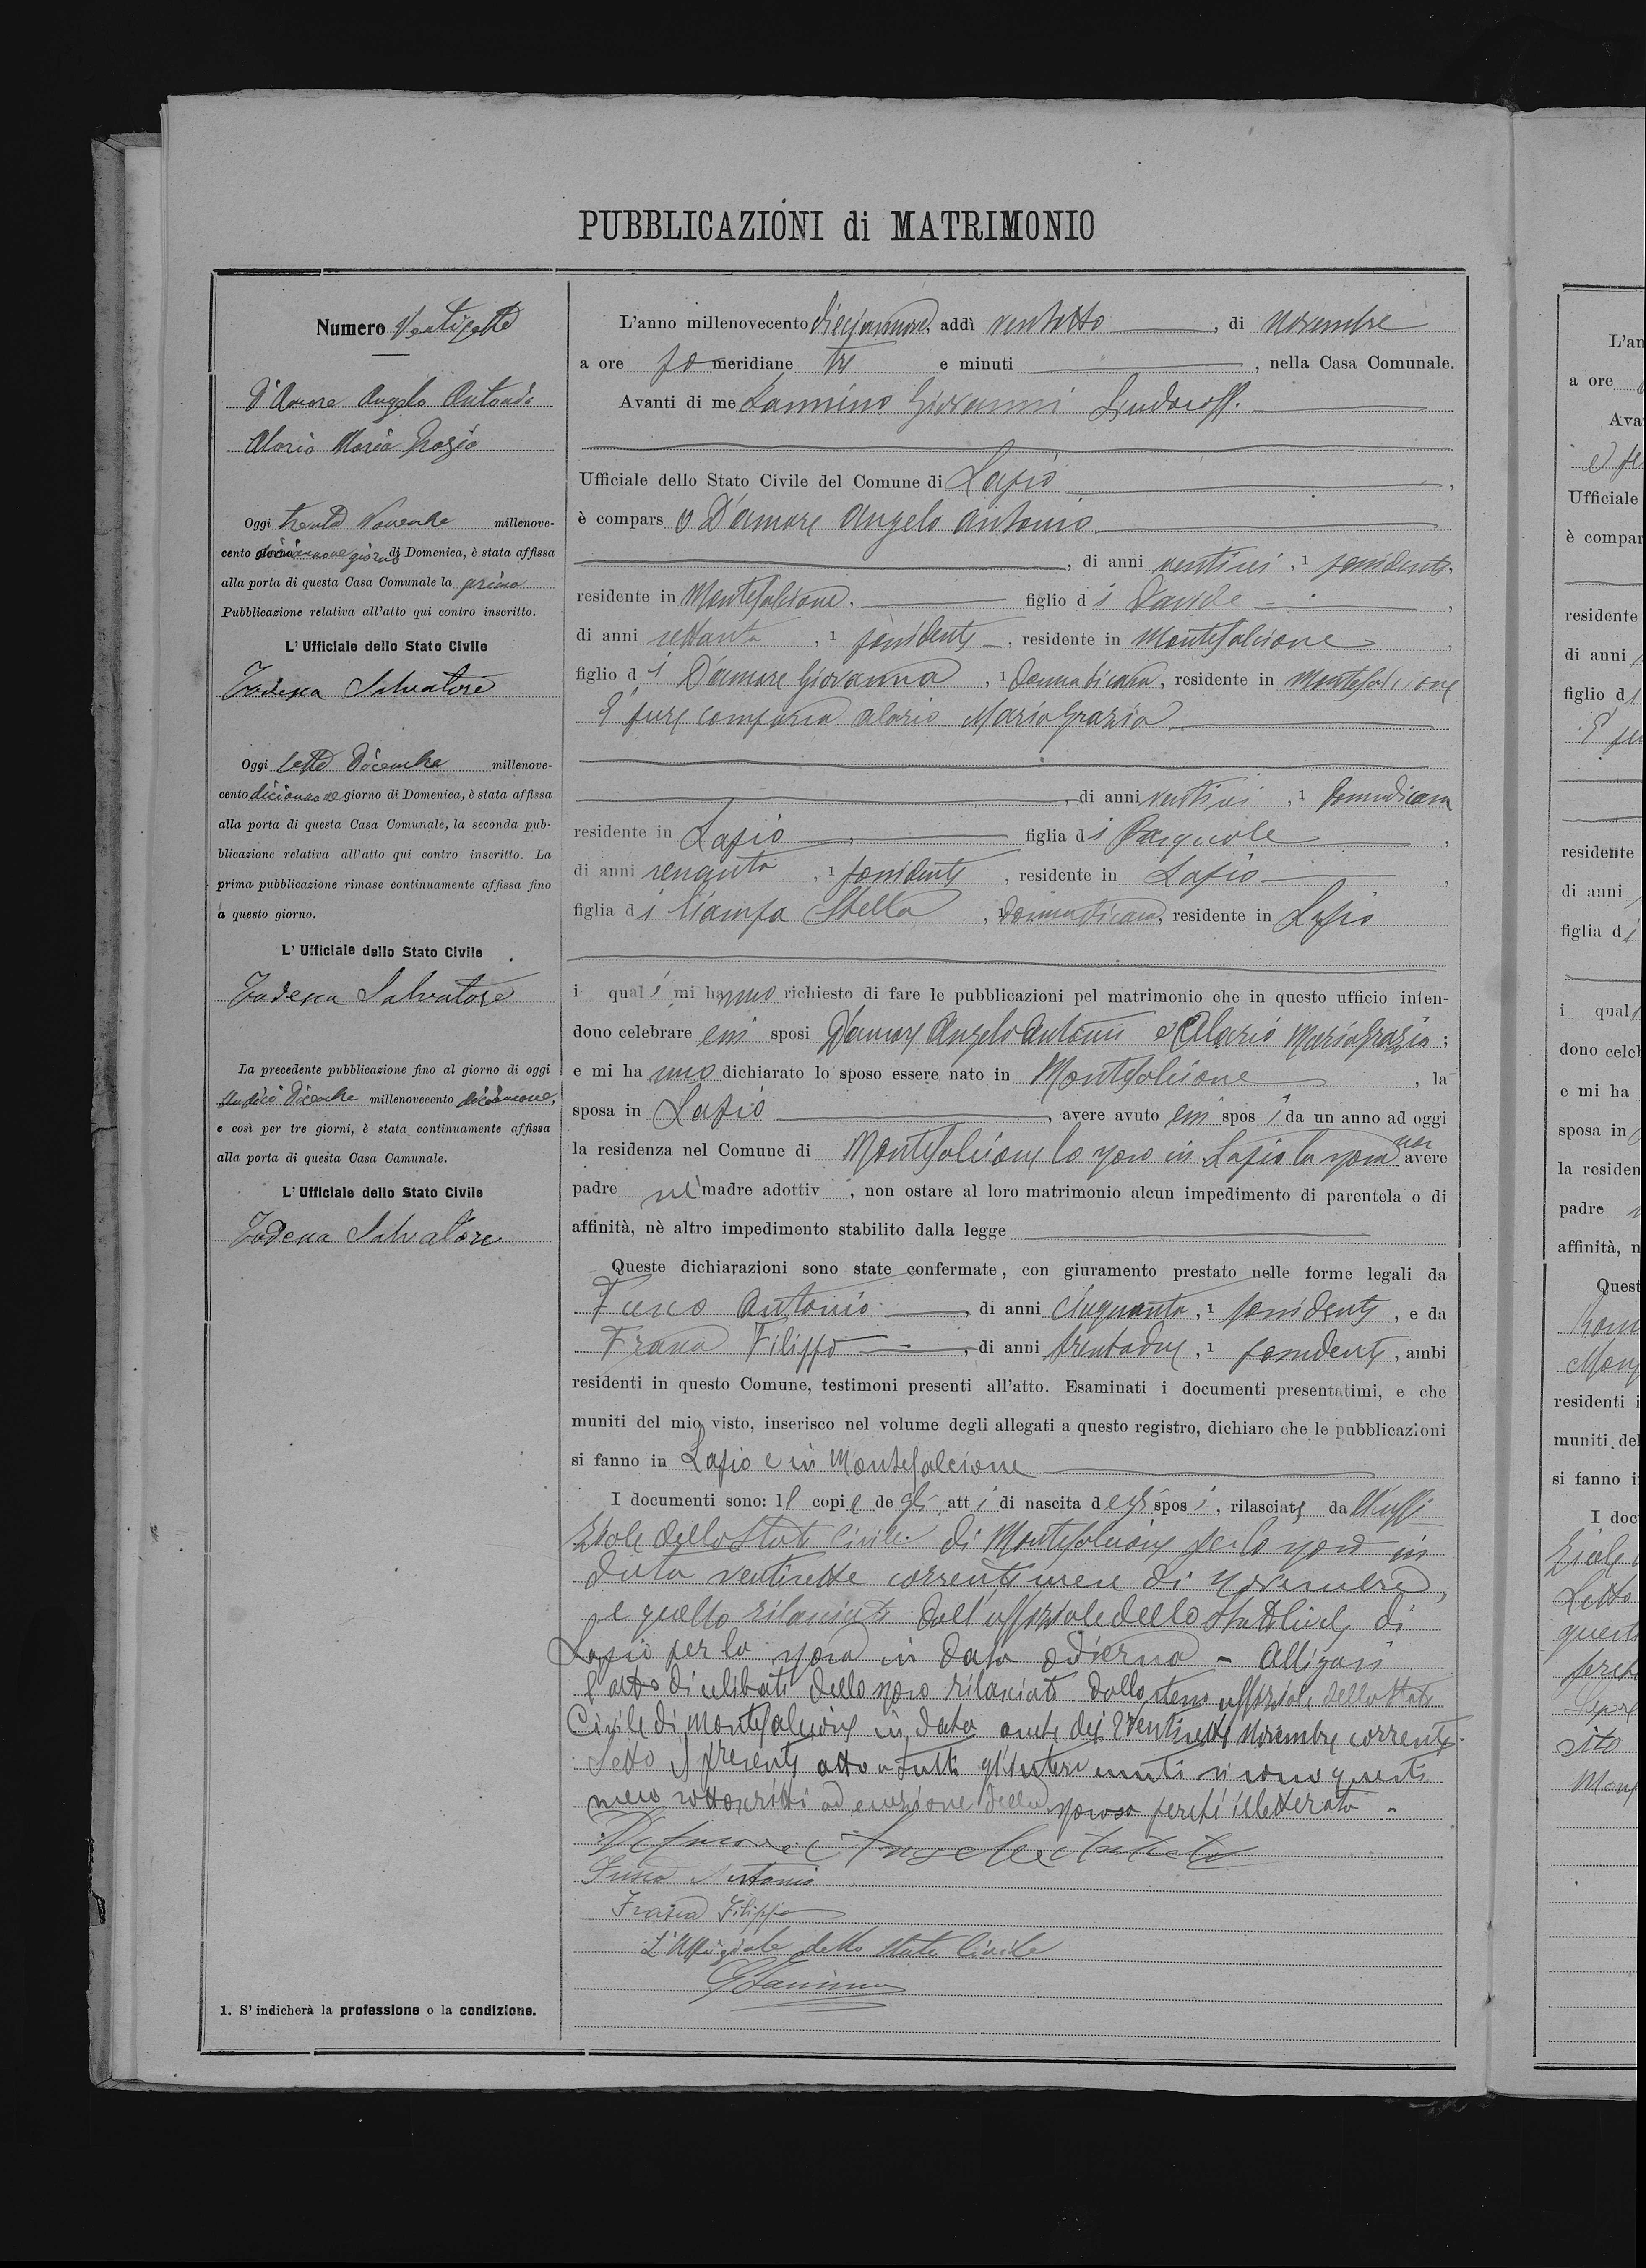 PUBBLICAZIONI di MATRIMONIO
Numero Ventisette
D'Amore Angelo Antonio
Alorio Maria Grazia
Oggi trenta Novembre millenove-
cento diciannove giorno di Domenica, è stata affissa
alla porta di questa Casa Comunale la prima
Pubblicazione relativa all'atto qui contro inscritto.
L'Ufficiale dello Stato Civile
Salvatore
Oggi sette Dicembre millenove-
cento diciannove giorno di Domenica, è stata affissa
alla porta di questa Casa Comunale, la seconda pub-
blicazione relativa all'atto qui contro inscritto. La
prima pubblicazione rimase continuamente affissa fino
a questo giorno.
L'Ufficiale dello Stato Civile
Salvatore
La precedente pubblicazione fino al giorno di oggi
undici Dicembre millenovecento diciannove,
e così per tre giorni, è stata continuamente affissa
alla porta di questa Casa Camunale.
L'Ufficiale dello Stato Civile
Salvatore
1. S'indicherà la professione o la condizione.
L'anno millenovecento diecjannove, addì ventotto, di novembre
a ore po meridiane tre e minuti , nella Casa Comunale.
Avanti di me Lannino Giovanni
Ufficiale dello Stato Civile del Comune di Lapio,
è compars o D'amore Angelo Antonio
, di anni ventisei, 1 possidente,
residente in Montefalcione. figlio d i Davide,
di anni settanta, 1 possidente, residente in Montefalcione,
figlio d i D'amore Giovanna, 1 donna di casa, residente in Montefalcione
E pure comparsa Alorio Maria Grazia
, di anni ventisei, 1 donna di casa
residente in Lapio figlia d i Pasquale,
di anni sessanta, 1 possidente, residente in Lapio,
figlia d i Ciampa Stella, 1 donna di casa, residente in Lapio
i quali mi hanno richiesto di fare le pubblicazioni pel matrimonio che in questo ufficio inten-
dono celebrare essi sposi D'amore Angelo Antonio e Alorio Maria Grazia;
e mi ha nno dichiarato lo sposo essere nato in Montefalcione, la
sposa in Lapio, avere avuto essi spos i da un anno ad oggi
la residenza nel Comune di Montefalcione lo sposo in Lapio la sposa non avere
padre nè madre adottiv , non ostare al loro matrimonio alcun impedimento di parentela o di
affinità, nè altro impedimento stabilito dalla legge
Queste dichiarazioni sono state confermate, con giuramento prestato nelle forme legali da
Fusco Antonio, di anni cinquanta, 1 possidente, e da
Filippo, di anni trentadue, 1 possidente, ambi
residenti in questo Comune, testimoni presenti all'atto. Esaminati i documenti presentatimi, e che
muniti del mio visto, inserisco nel volume degli allegati a questo registro, dichiaro che le pubblicazioni
si fanno in Lapio e in Montefalcione
I documenti sono: le copie de gli atti di nascita degli sposi, rilasciate da ll'uffi
ziale dello Stato Civile di Montefalcione per lo sposo in
data ventisette corrente mese di novembre,
e quello rilasciato dall'uffiziale dello Stato Civile di
Lapio per la sposa in data odierna - Allegasi
l'atto di celibato dello sposo rilasciato dallo stesso uffiziale dello Stato
Civile di Montefalcione in data anche dei ventisette novembre corrente
Letto il presente atto a tutti gl'intervenuti si sono questi
meco sottoscritti ad eccezione della sposa perchè illetterata -
D'Amore Angelo Antonio
Fusco Antonio
Filippo
L'Uffiziale dello Stato Civile
G Lannino
L'an
a ore
Ava
Ufficiale
è compar
residente
di anni
figlio d i
residente
di anni
figlia d i
i qual
dono celel
e mi ha
sposa in
la residen
padre
affinità, n
Quest
residenti i
muniti del
si fanno i
I doc
ziale
Letto
questi
perchè